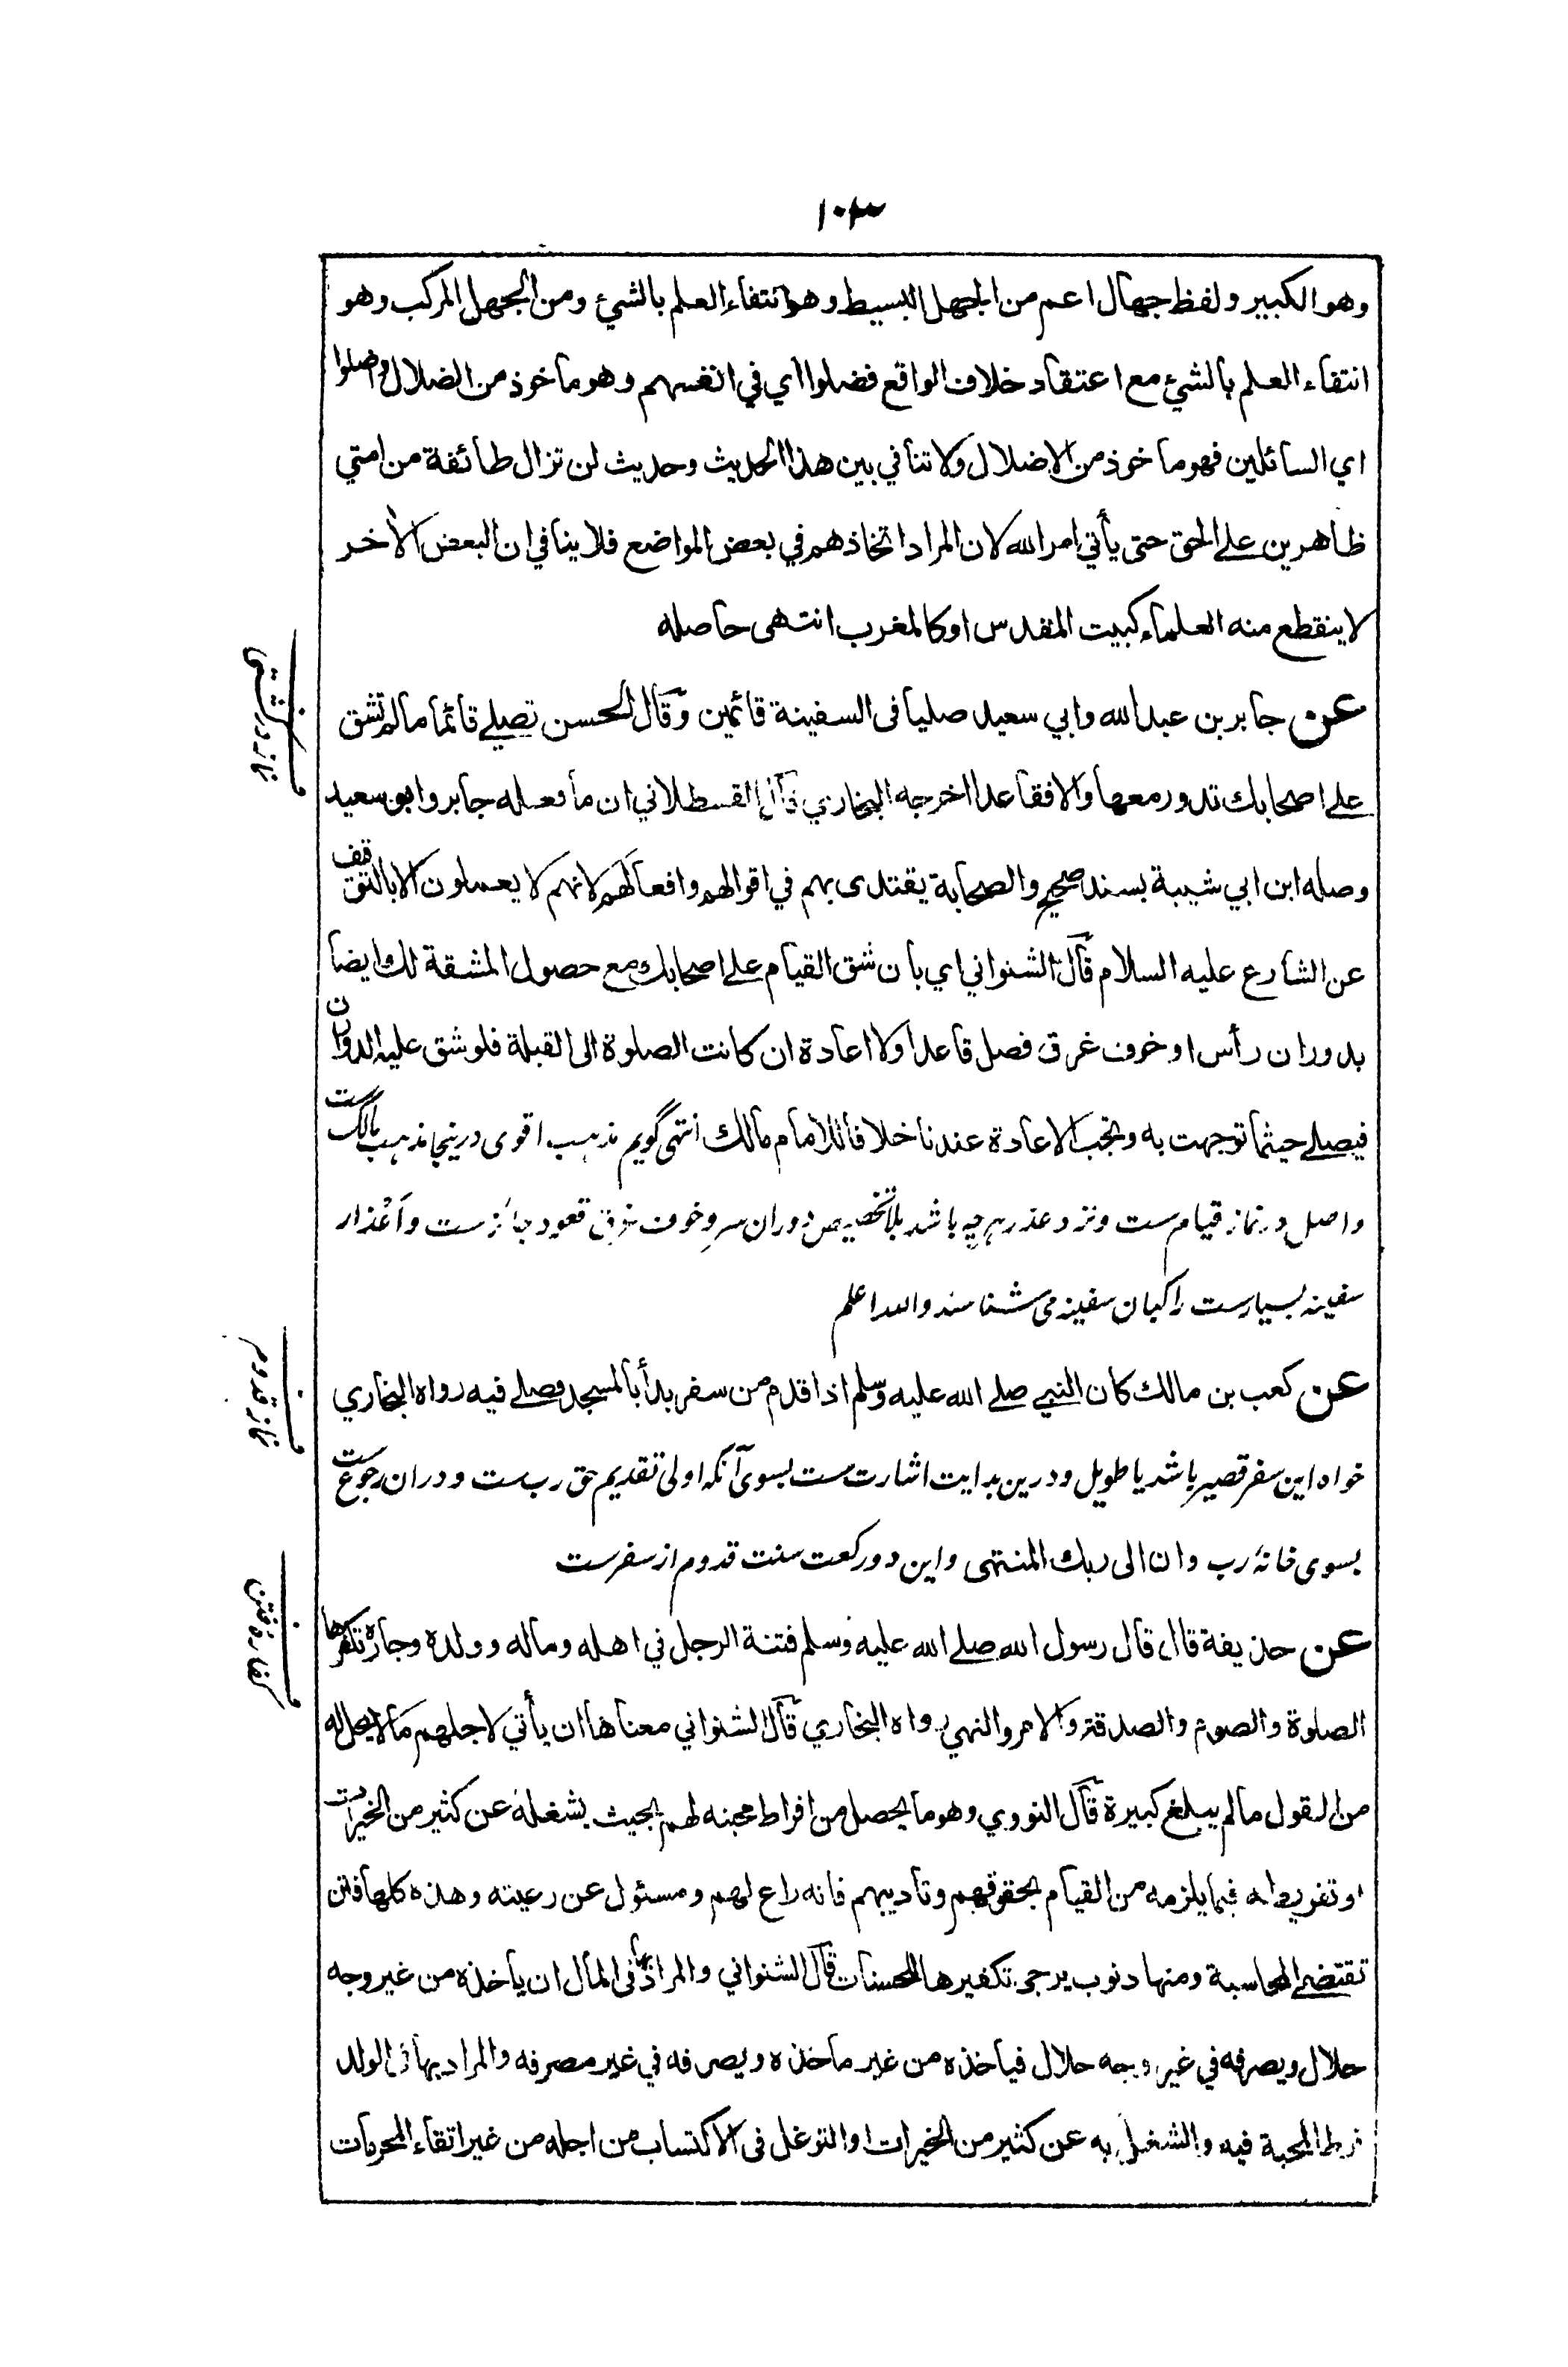 ۱۰۳
وهو الكبير ولفظ جهال اعم من الجهل البسيط وهو انتفاء العلم بالشئ ومن الجهل المركب وهو
انتفاء العلم بالشئ مع اعتقاد خلاف الواقع فضلوا اي في انفسهم وهو ماخوذ من الضلال واضلوا
اي السائلين فهو ماخوذ من الاضلال ولا تنافي بين هذا الحديث وحديث لن تزال طائفة من امتي
ظاهرين على الحق حتى يأتي امر الله لان المراد اتخاذهم في بعض المواضع فلا ينافي ان البعض الأخر
لا ينقطع منه العلماء كبيت المقدس او كالمغرب انتهى حاصله
عن جابر بن عبد الله وابي سعيد صليا فى السفينة قائمين وقال الحسن تصلي قائما مالم تشق
على اصحابك تدور معها والا فقاعدا اخرجه البخاري قال القسطلاني ان ما فعله جابر وابو سعيد
وصله ابن ابي شيبة بسند صحيح والصحابة يقتدى بهم في اقوالهم وافعالهم لانهم لا يعملون الا بالتوقيف
عن الشارع عليه السلام قال الشنواني اي بان شق القيام على اصحابك مع حصول المشقة لك ايضا
بدوران رأس او خوف غرق فصل قاعدا ولا اعادة ان كانت الصلوة الى القبلة فلو شق عليه الدوران
فيصلي حيثما توجهت به وتجب الاعادة عندنا خلافا للامام مالك انتهى گويم مذہب اقوى درينجا مذہب مالک ست
واصل در نماز قيام ست ونزد عذر ہرچه باشد بلا تخصيص دوران سر وخوف غرق قعود جائز ست واعذار
سفينه بسيارست راكبان سفينه مى شناسند والله اعلم
عن كعب بن مالك كان النبي صلى الله عليه وسلم اذا قدم من سفر بدأ بالمسجد وصلى فيه رواه البخاري
خواه اين سفر قصير باشد يا طويل ودرين بدايت اشارت ست بسوى آنكه اولى تقديم حق رب ست ودران رجوع ست
بسوى خانۂ رب وان الى ربك المنتهى واين دو ركعت سنت قدوم از سفرست
عن حذيفة قال قال رسول الله صلى الله عليه وسلم فتنة الرجل في اهله وماله وولده وجاره تكفرها
الصلوة والصوم والصدقة والامر والنهي رواه البخاري قال الشنواني معناها ان يأتي لاجلهم مالا يحل له
من القول مالم يبلغ كبيرة قال النووي وهو ما يحصل من افراط محبته لهم بحيث يشغله عن كثير من الخيرات
او تفريطه فيما يلزمه من القيام بحقوقهم وتاديبهم فانه راع لهم ومسئول عن رعيته وهذه كلها فتن
تقتضي المحاسبة ومنها ذنوب يرجى تكفيرها بالحسنات قال الشنواني والمراد بها فى المال ان ياخذه من غير وجه
حلال ويصرفه في غير وجه حلال فياخذه من غير ماخذه ويصرفه في غير مصرفه والمراد بها فى الولد
فرط المحبة فيه والشغل به عن كثير من الخيرات او التوغل فى الاكتساب من اجله من غير اتقاء المحرمات
نماز در كشتى
نماز قدوم
كفارۂ فتن